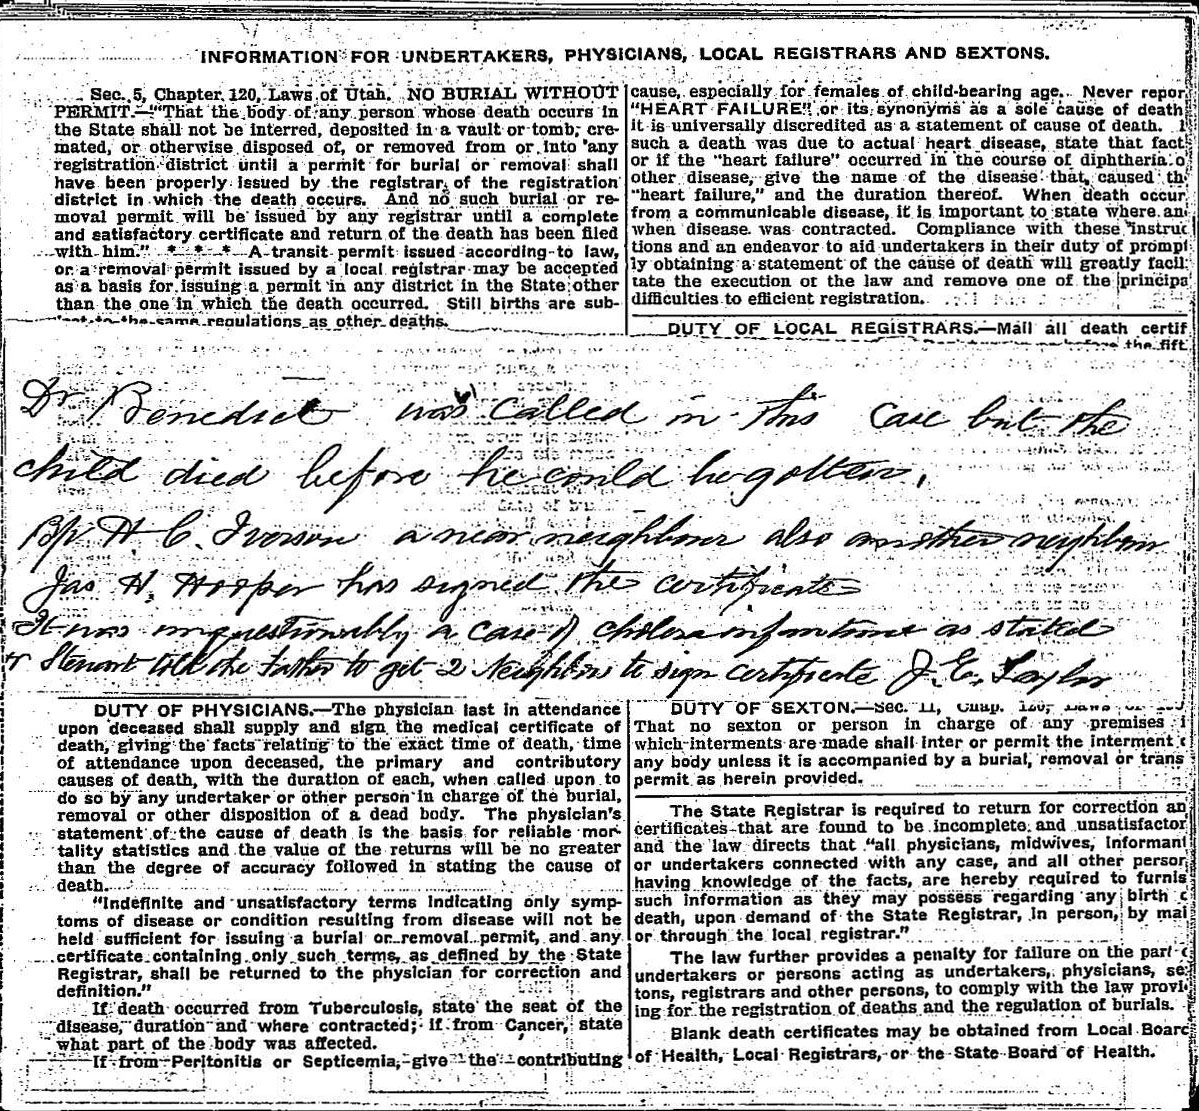 INFORMATION FOR UNDERTAKERS, PHYSICIANS, LOCAL REGISTRARS AND SEXTONS.
Sec. 5, Chapter 120, Laws of Utah. NO BURIAL WITHOUT
PERMIT.—"That the body of any person whose death occurs in
the State shall not be interred, deposited in a vault or tomb, cre-
mated, or otherwise disposed of, or removed from or into any
registration district until a permit for burial or removal shall
have been properly issued by the registrar of the registration
district in which the death occurs. And no such burial or re-
moval permit will be issued by any registrar until a complete
and satisfactory certificate and return of the death has been filed
with him." * * * A transit permit issued according to law,
or a removal permit issued by a local registrar may be accepted
as a basis for issuing a permit in any district in the State other
than the one in which the death occurred. Still births are sub-
to the same regulations as other deaths.
cause, especially for females of child-bearing age. Never repor
"HEART FAILURE" or its synonyms as a sole cause of death
it is universally discredited as a statement of cause of death. I
such a death was due to actual heart disease, state that fact
or if the "heart failure" occurred in the course of diphtheria o
other disease, give the name of the disease that caused th
"heart failure," and the duration thereof. When death occur
from a communicable disease, it is important to state where an
when disease was contracted. Compliance with these instruc
tions and an endeavor to aid undertakers in their duty of prompt
ly obtaining a statement of the cause of death will greatly facil
tate the execution of the law and remove one of the principa
difficulties to efficient registration.
DUTY OF LOCAL REGISTRARS.—Mail all death certif
before the fift
Dr Benedict was called in this case but the
child died before he could be gotten.
Bp H. C. Iverson a near neighbour also another neighbour
Jas H. Hooper has signed the certificate
It was unquestionably a case of cholera infantum as stated
Stewart told the father to get 2 Neighbors to sign certificate J. E. Taylor
DUTY OF PHYSICIANS.—The physician last in attendance
upon deceased shall supply and sign the medical certificate of
death, giving the facts relating to the exact time of death, time
of attendance upon deceased, the primary and contributory
causes of death, with the duration of each, when called upon to
do so by any undertaker or other person in charge of the burial,
removal or other disposition of a dead body. The physician's
statement of the cause of death is the basis for reliable mor-
tality statistics and the value of the returns will be no greater
than the degree of accuracy followed in stating the cause of
death.
"Indefinite and unsatisfactory terms indicating only symp-
toms of disease or condition resulting from disease will not be
held sufficient for issuing a burial or removal permit, and any
certificate containing only such terms, as defined by the State
Registrar, shall be returned to the physician for correction and
definition."
If death occurred from Tuberculosis, state the seat of the
disease, duration and where contracted; if from Cancer, state
what part of the body was affected.
If from Peritonitis or Septicemia, give the contributing
DUTY OF SEXTON.—Sec. 11, Chap. 120, Laws of
That no sexton or person in charge of any premises i
which interments are made shall inter or permit the interment c
any body unless it is accompanied by a burial, removal or trans
permit as herein provided.
The State Registrar is required to return for correction an
certificates that are found to be incomplete and unsatisfactor
and the law directs that "all physicians, midwives, informant
or undertakers connected with any case, and all other person
having knowledge of the facts, are hereby required to furnis
such information as they may possess regarding any birth c
death, upon demand of the State Registrar, in person, by mai
or through the local registrar."
The law further provides a penalty for failure on the part c
undertakers or persons acting as undertakers, physicians, se
tons, registrars and other persons, to comply with the law provi
ing for the registration of deaths and the regulation of burials.
Blank death certificates may be obtained from Local Board
of Health, Local Registrars, or the State Board of Health.